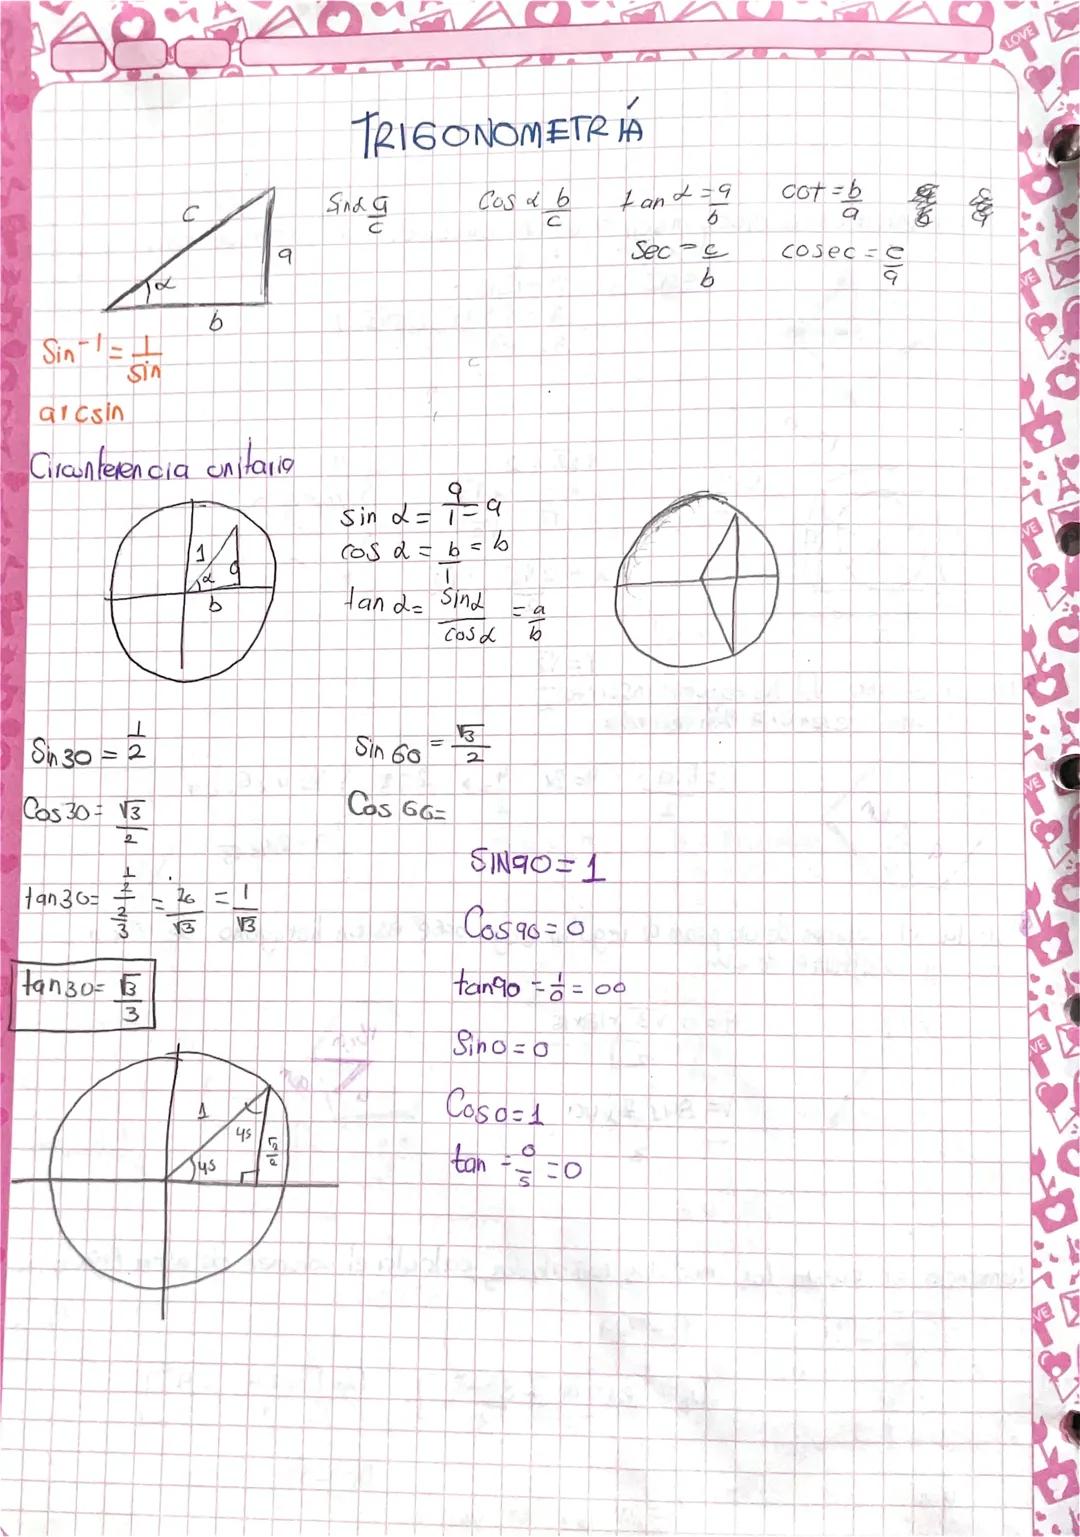 LOVE
TRIGONOMETRIÁ
c
a
α
b
Sinα a/c   Cos α b/c   tan α = a/b   cot = b/a
Sec = c/b   cosec = c/a
Sin⁻¹ = 1/sin
arcsin
Circunferencia unitaria
1
α
a
b
sin α = a/1 = a
cos α = b/1 = b
tan α = Sinα/cosα = a/b
Sin 30 = 1/2   Sin 60 = √3/2
Cos 30 = √3/2   Cos 60=
SIN90 = 1
Cos 90 = 0
tan90 = 1/0 = ∞
Sin 0 = 0
Cos 0 = 1
tan = 0/5 = 0
= 1/√3
tan30 = √3/3
1
45
45
√2/2